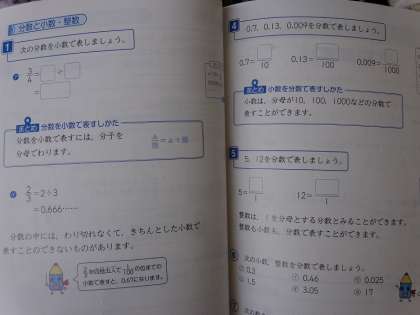 分数と小数・整数
1 次の分数を小数で表しましょう。
3/4=□÷□
=□
まとめ 分数を小数で表すしかた
分数を小数で表すには、分子を
分母でわります。
2/3=2÷3
=0.666……
分数の中には、わり切れなくて、きちんとした小数で
表すことのできないものがあります。
小数で表すと、0.67になります。
4 0.7、0.13、0.009を分数で表しましょう。
0.7=□/10 0.13=□/100 0.009=□/1000
まとめ 小数を分数で表すしかた
小数は、分母が10、100、1000などの分数で
表すことができます。
5 5、12を分数で表しましょう。
5=□/1 12=□/1
整数は、1を分母とする分数とみることができます。
整数も小数も、分数で表すことができます。
6 次の小数、整数を分数で表しましょう。
0.3 0.46 0.025
1.5 3.05 17